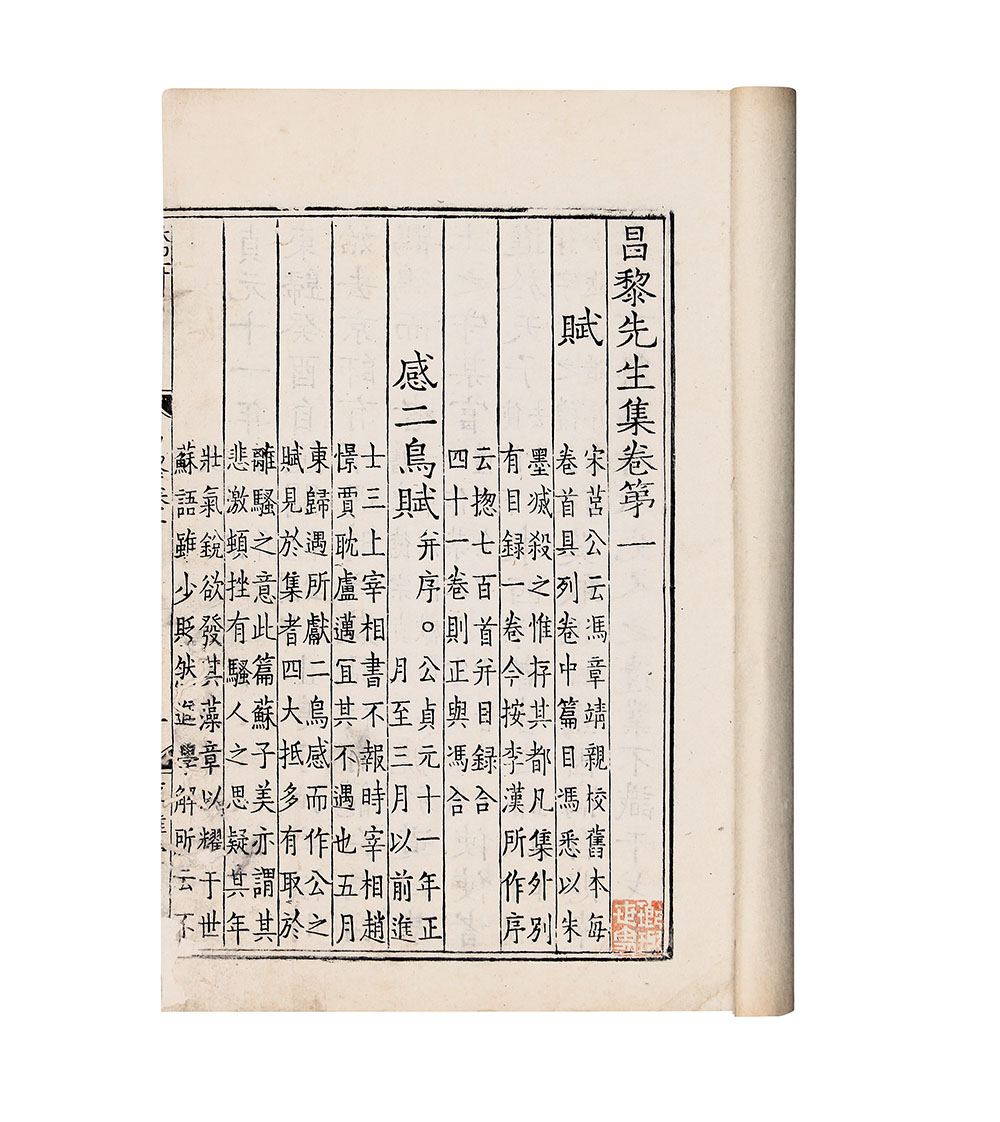 昌黎先生集卷第一
賦
宋莒公云馮章靖親校舊本每
卷首具列卷中篇目馮悉以朱
墨滅殺之惟存其都凡集外別
有目録一卷今按李漢所作序
云揔七百首并目録合
四十一卷則正與馮合
感二鳥賦
并序○公貞元十一年正
月至三月以前進
士三上宰相書不報時宰相趙
憬賈耽盧邁冝其不遇也五月
東歸遇所獻二鳥感而作公之
賦見於集者四大抵多有取於
離騷之意此篇蘇子美亦謂其
悲激頓挫有騷人之思疑其年
壯氣銳欲發其藻章以耀于世
蘇語雖少貶然進學解所云不